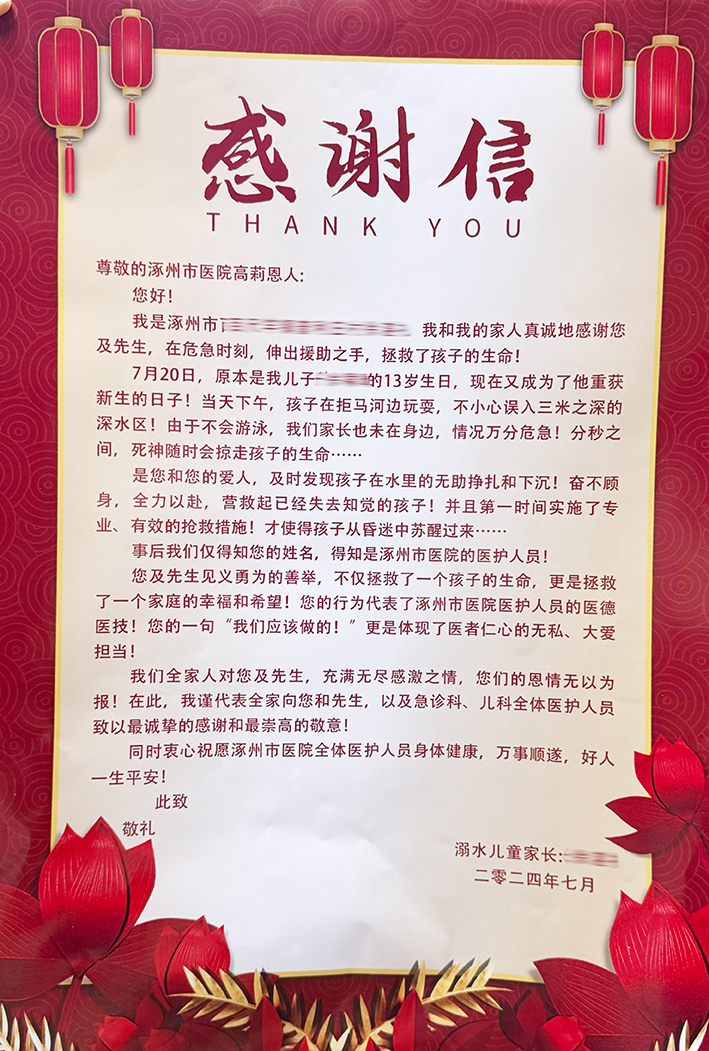 感谢信
THANK YOU
尊敬的涿州市医院高莉恩人：
您好！
我是涿州市 我和我的家人真诚地感谢您
及先生，在危急时刻，伸出援助之手，拯救了孩子的生命！
7月20日，原本是我儿子 的13岁生日，现在又成为了他重获
新生的日子！当天下午，孩子在拒马河边玩耍，不小心误入三米之深的
深水区！由于不会游泳，我们家长也未在身边，情况万分危急！分秒之
间，死神随时会掠走孩子的生命……
是您和您的爱人，及时发现孩子在水里的无助挣扎和下沉！奋不顾
身，全力以赴，营救起已经失去知觉的孩子！并且第一时间实施了专
业、有效的抢救措施！才使得孩子从昏迷中苏醒过来……
事后我们仅得知您的姓名，得知是涿州市医院的医护人员！
您及先生见义勇为的善举，不仅拯救了一个孩子的生命，更是拯救
了一个家庭的幸福和希望！您的行为代表了涿州市医院医护人员的医德
医技！您的一句“我们应该做的！”更是体现了医者仁心的无私、大爱
担当！
我们全家人对您及先生，充满无尽感激之情，您们的恩情无以为
报！在此，我谨代表全家向您和先生，以及急诊科、儿科全体医护人员
致以最诚挚的感谢和最崇高的敬意！
同时衷心祝愿涿州市医院全体医护人员身体健康，万事顺遂，好人
一生平安！
此致
敬礼
溺水儿童家长：
二零二四年七月